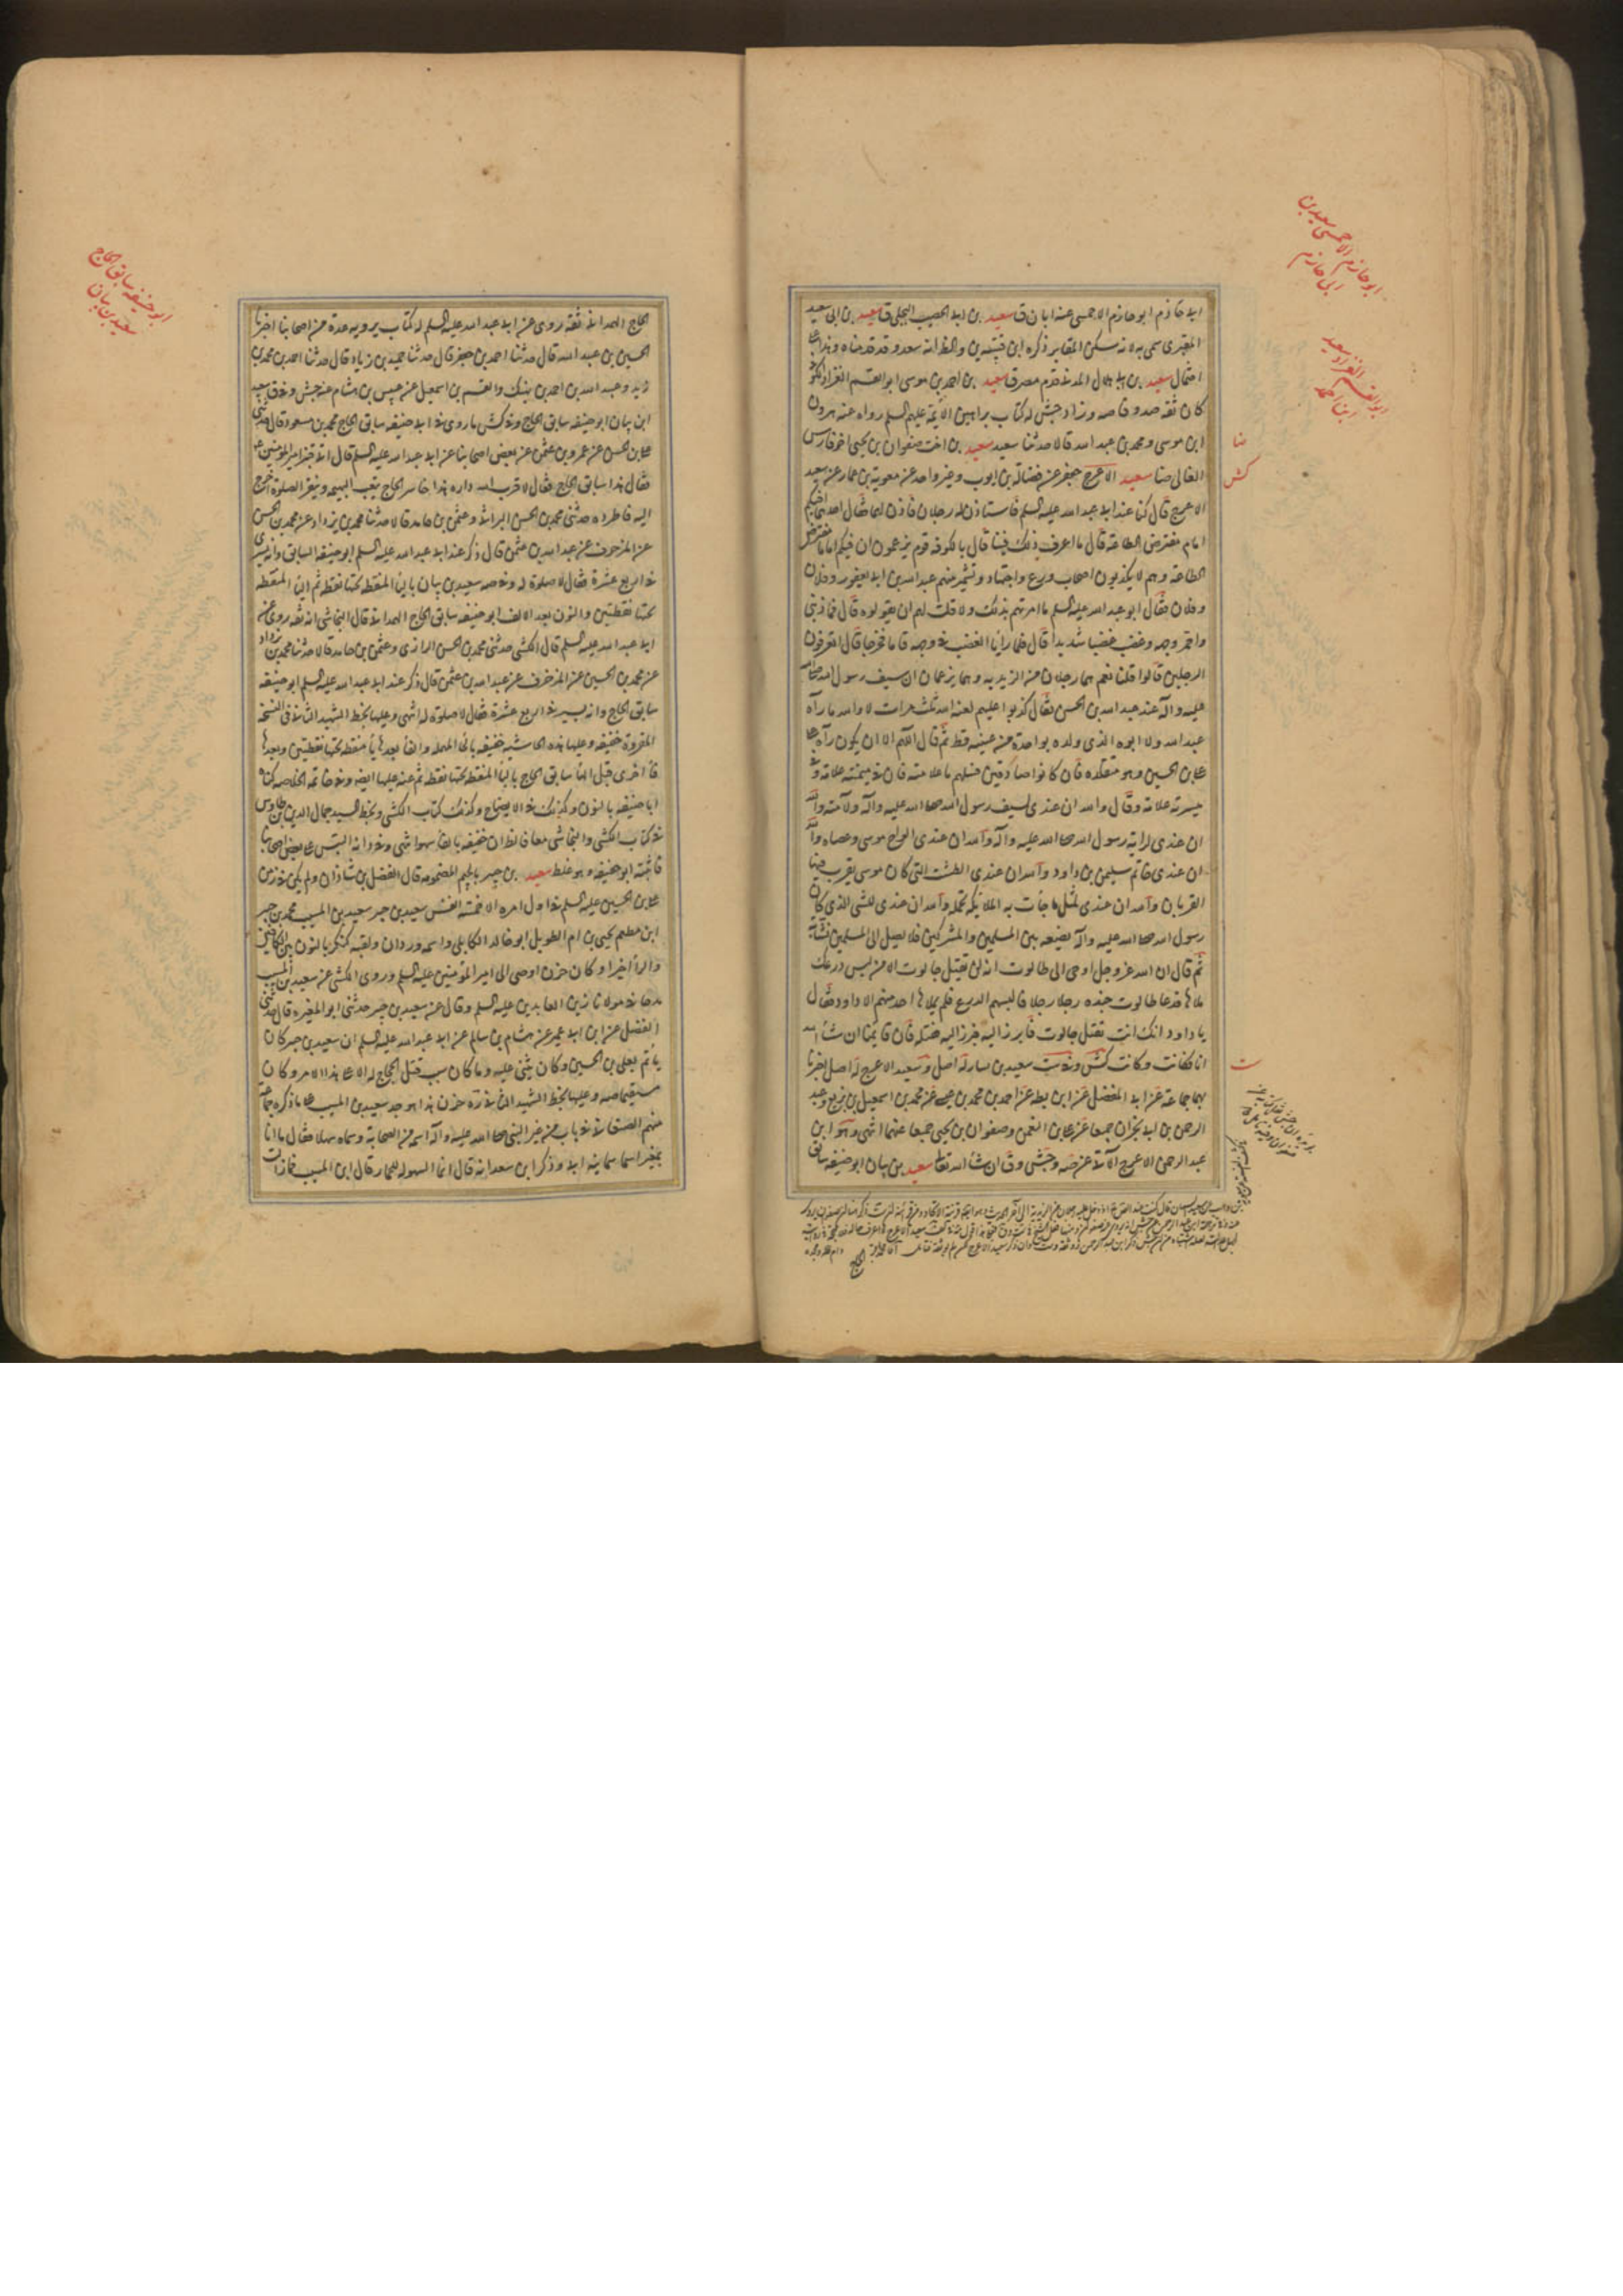 ابى حازم ابو حازم الاحمسى عنه ابان ق سعيد بن ابى الخصيب البجلى ق سعيد بن ابى سعيد
المقبرى سمى به لانه سكن المقابر ذكره ابن قتيبه ين والظ انه سعد و قد قدمناه
احتمال سعيد بن ابى هلال المدنى قدم مصر ق سعيد بن احمد بن موسى ابو القسم الغراد الكوفى
كان ثقه صدوقا صه وزاد جش له كتاب براهين الائمة عليهم السلم رواه عنه هرون
ابن موسى و محمد بن عبد الله قالا حدثنا سعيد سعيد بن اخت صفوان بن يحيى اخو فارس
الغالى ضا سعيد الاعرج جعفر عن فضالة بن ايوب و غير واحد عن معوية بن عمار عن سعيد
الاعرج قال كنا عند ابى عبد الله عليه السلم فاستاذن له رجلان فاذن لهما فقال احدهما افيكم
امام مفترض الطاعة قال ما اعرف ذلك فينا قال بالكوفه قوم يزعمون ان فيكم اماما مفترض
الطاعة وهم لا يكذبون اصحاب ورع و اجتهاد و تشمير منهم عبد الله بن ابى يعفور و فلان
و فلان فقال ابو عبد الله عليه السلم ما امرتهم بذلك ولا قلت لهم ان يقولوه قال فما ذنبى
واحمر وجهه وغضب غضبا شديدا قال فلما رايا الغضب فى وجهه قاما فخرجا قال اتعرفون
الرجلين قالوا قلنا نعم هما رجلان من الزيديه وهما يزعمان ان سيف رسول الله صلى الله
عليه و آله عند عبد الله بن الحسن فقال كذبوا عليهم لعنة الله ثلث مرات لا والله ما رآه
عبد الله ولا ابوه الذى ولده بواحدة من عينيه قط ثم قال اللهم الا ان يكون رآه على
على بن الحسين وهو متقلده فان كانوا صادقين فسلهم ما علامته فان فى ميمنته علامة وفى
ميسرته علامة وقال والله ان عندى لسيف رسول الله صلى الله عليه و آله ولامته والله
ان عندى لراية رسول الله صلى الله عليه و آله والله ان عندى الواح موسى وعصاه والله
ان عندى خاتم سليمن بن داود والله ان عندى الطشت التى كان موسى يقرب فيها
القربان والله ان عندى لمثل ما جاءت به الملائكه تحمله والله ان عندى للشى الذى كان
رسول الله صلى الله عليه و آله يضعه بين المسلمين والمشركين فلا يصل الى المسلمين نشابة
ثم قال ان الله عز وجل اوحى الى طالوت انه لن يقتل جالوت الا من لبس درعك
ملاها فدعا طالوت جنده رجلا رجلا فالبسهم الدرع فلم يملاها احد منهم الا داود فقال
يا داود انك انت تقتل جالوت فابرز اليه فبرز اليه فقتله فان قايمنا ان شاء الله
سعيد بن يسار له اصل و سعيد الاعرج له اصل اخبرنا
بهما جماعة عن ابى المفضل عن ابن بطه عن احمد بن محمد بن عيسى عن محمد بن اسمعيل بن بزيع و عبد
الرحمن بن ابى نجران جميعا عن على بن النعمن و صفوان بن يحيى جميعا عنهما انتهى وهو ابن
عبد الرحمن الاعرج الآتى عن صه و جش و ق ان شاء الله تعالى سعيد بن بيان ابو حنيفه سابق
الحاج
ابو حازم الاحمسى سعيد بن
ابى حازم
ابو القسم الغراد سعيد
ابن احمد
ضا
كش
ست
الحاج الهمدانى ثقة روى عن ابى عبد الله عليه السلم له كتاب يرويه عدة من اصحابنا اخبرنا
الحسين بن عبد الله قال حدثنا احمد بن جعفر قال حدثنا حميد بن زياد قال حدثنا احمد بن محمد بن
زيد و عبد الله بن احمد بن نهيك والقسم بن اسمعيل عن عبيس بن هشام عنه جش وفى ق سعيد
ابن بيان ابو حنيفه سابق الحاج وفى كش ما روى فى ابى حنيفه سابق الحاج محمد بن مسعود قال حدثنى
على بن الحسن عن عمرو بن عثمن عن بعض اصحابنا عن ابى عبد الله عليه السلم قال اتى قنبر امير المؤمنين ع
فقال هذا سابق الحاج فقال لا قرب الله داره هذا خاسر الحاج يتعب البهيمه و ينقر الصلوة اخرج
اليه فاطرده حدثنى محمد بن الحسن البراثى و عثمن بن حامد قالا حدثنا محمد بن يزداد عن محمد بن الحسن
عن المزخرف عن عبد الله بن عثمن قال ذكر عند ابى عبد الله عليه السلم ابو حنيفه السابق وانه يسرى
فى اربع عشرة فقال لا صلوة له وفى صه سعيد بن بيان بالباء المنقطه تحتها نقطه ثم الياء المنقطه
تحتها نقطتين والنون بعد الالف ابو حنيفه سابق الحاج الهمدانى قال النجاشى انه ثقه روى عن
ابى عبد الله عليه السلم قال الكشى حدثنى محمد بن الحسن البراثى و عثمن بن حامد قالا حدثنا محمد بن يزداد
عن محمد بن الحسين عن المزخرف عن عبد الله بن عثمن قال ذكر عند ابى عبد الله عليه السلم ابو حنيفه
سابق الحاج وانه يسير فى اربع عشرة فقال لا صلوة له انتهى و عليها بخط الشهيد الثانى فى النسخة
المقروة خنيفه و عليها هذه الحاشيه خنيفه بالخاء المهمله والفاء بعدها ياء منقطه تحتها نقطتين و بعدها
فاء اخرى قبل الهاء سابق الحاج بالباء المنقطه تحتها نقطه ثم عنه عليها ايضه وفى خاتمة الخلاصه كناه
ابا حنيفه بالنون وكذلك فى الايضاح وكذلك كتاب الكشى و بخط السيد جمال الدين بن طاوس
فى كتاب الكشى والنجاشى معا فالظ ان خنيفه بالفاء سهوا انتهى وفى د انه التبس على بعض اصحابنا
فاثبته ابو حنيفه وهو غلط سعيد بن جبير بالجيم المضمومه قال الفضل بن شاذان ولم يكن فى زمن
على بن الحسين عليه السلم فى اول امره الا خمسة انفس سعيد بن جبير سعيد بن المسيب محمد بن جبير
ابن مطعم يحيى بن ام الطويل ابو خالد الكابلى واسمه وردان ولقبه كنكر بالنون بين الكافين
والراء اخيرا وكان حزن اوصى الى امير المؤمنين عليه السلم و روى الكشى عن سعيد بن المسيب
مدحا فى مولانا زين العابدين عليه السلم وقال عن سعيد بن جبير حدثنى ابو المغيره قال حدثنى
الفضل عن ابن ابى عمير عن هشام بن سالم عن ابى عبد الله عليه السلم ان سعيد بن جبير كان
يأتم بعلى بن الحسين وكان يثنى عليه وما كان سبب قتل الحجاج له الا على هذا الامر وكان
مستقيما صه و عليها بخط الشهيد الثانى حزن هذا هو جد سعيد بن المسيب على ما ذكره جماعة
منهم الصنعانى فى باب من غير النبى صلى الله عليه و آله اسمه من الصحابة وسماه سهلا فقال ما انا
بمغير اسما سمانيه ابى و ذكر ابن سعد انه قال انما السهولة للحمار قال ابن المسيب فما زالت
ابو حنيفه سابق الحاج
سعيد بن بيان